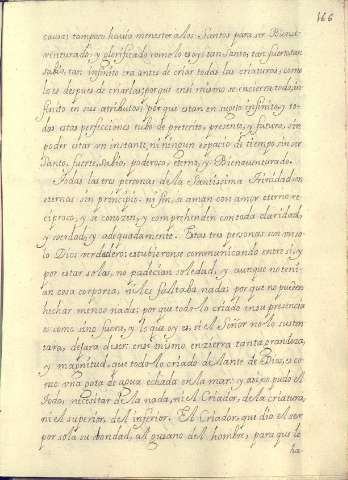 166
causa; tampoco havia menester a los Santos para ser Bienav
venturado, y glorificado como lo es oy; tan Santo, tan fuerte, tan
sabio, tan infinito era antes de criar todas las criaturas, como
lo es despues de criarlas; porque en si mismo se encierra todo, in
finito en sus atributos; porque estan en sugeto infinito, y to
das estas perfecciones tubo de preterito, presente, y futuro, sin
poder estar un instante, ni ningun espacio de tiempo, sin ser
Santo, fuerte, sabio, poderoso, eterno, y Bienaventurado.
Todas las tres personas de la Santissima Trinidad son
eternas sin principio, ni fin, se aman con amor eterno re
ciproco, y se conozen, y comprehenden con toda claridad,
y verdad, y adequadamente. Estas tres personas son un so
lo Dios verdadero; estubieronse comunicando entre si, y
por estar solas, no padecian soledad, y aunque no teni
an cosa corporea, ni les faltaba nada; porque no pueden
hechar menos nada; porque todo lo criado en su presencia
es como sino fuera, y lo que oy es, si el Señor no lo susten
tara, dejara de ser: en si mismo enzierra tanta grandeza,
y magnitud, que todo lo criado delante de Dios, es co
mo una gota de agua echada en la mar; y assi no pudo el
Todo, necesitar de la nada, ni el Criador, de la criatura,
ni el superior, del inferior. El Criador, que dio el ser
por sola su bondad, al gusano del hombre, para que le
ha